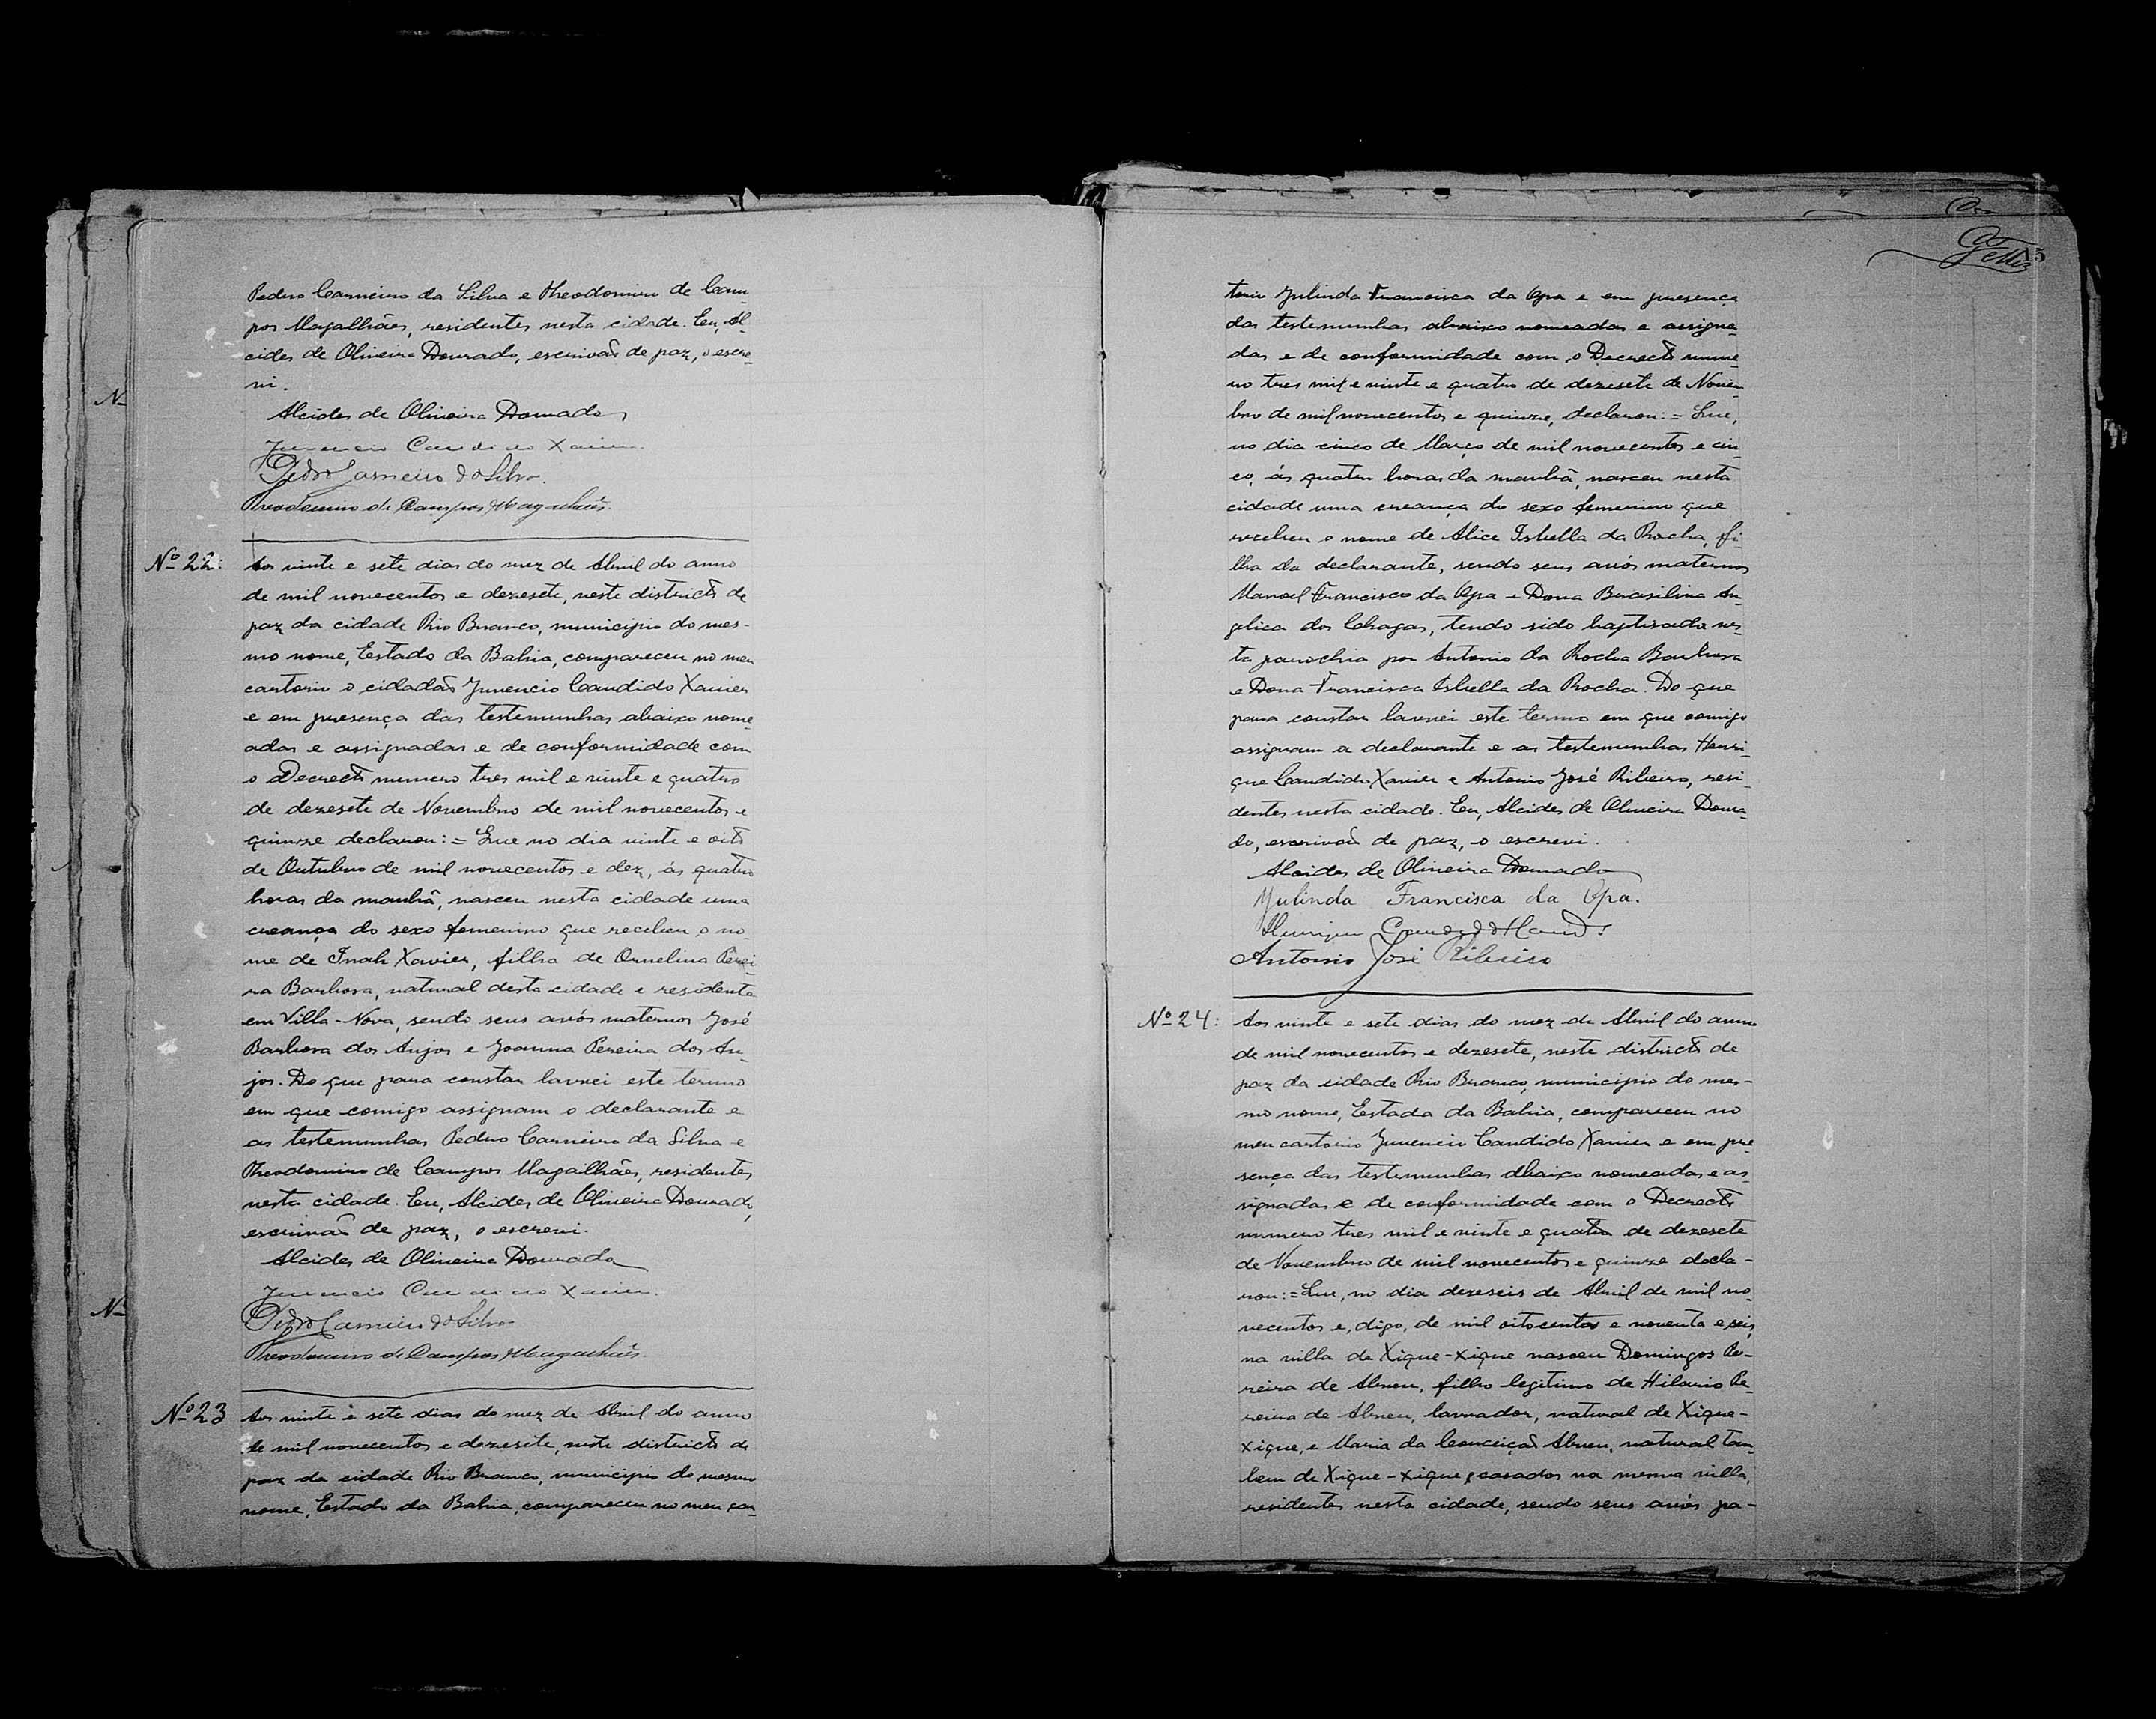 Pedro Carneiro da Silva e Theodomiro de Cam-
pos Magalhães, residentes nesta cidade. Eu, Al-
cides de Oliveira Dourado, escrivaõ de paz, o escre-
vi.
Alcides de Oliveira Dourado
Juvencio Candido Xavier
Pedro Carneiro da Silva.
Theodomiro de Campos Magalhães.
Nº 22:
Aos vinte e sete dias do mez de Abril do anno
de mil novecentos e dezesete, neste districto de
paz da cidade Rio Branco, municipio do mes-
mo nome, Estado da Bahia, compareceu no meu
cartorio o cidadaõ Juvencio Candido Xavier
e em presença das testemunhas abaixo nome
adas e assignadas e de conformidade com
o Decreto numero tres mil e vinte e quatro
de dezesete de Novembro de mil novecentos e
quinze declarou: = Que no dia vinte e oito
de Outubro de mil novecentos e dez, ás quatro
horas da manhã, nasceu nesta cidade uma
creança do sexo femenino que recebeu o no-
me de Inah Xavier, filha de Ornelina Perei-
ra Barbosa, natural desta cidade e residente
em Villa-Nova, sendo seus avós maternos José
Barbosa dos Anjos e Joanna Pereira dos An-
jos. Do que para constar lavrei este termo
em que comigo assignam o declarante e
as testemunhas Pedro Carneiro da Silva e
Theodomiro de Campos Magalhães, residentes
nesta cidade. Eu, Alcides de Oliveira Dourado,
escrivaõ de paz, o escrevi.
Alcides de Oliveira Dourado
Juvencio Candido Xavier.
Pedro Carneiro da Silva
Theodomiro de Campos Magalhães.
Nº 23
Aos vinte e sete dias do mez de Abril do anno
de mil novecentos e dezesete, neste districto de
paz da cidade Rio Branco, municipio do mesmo
nome, Estado da Bahia, compareceu no meu car-
torio Julinda Francisca da Opa e em presença
das testemunhas abaixo nomeadas e assigna-
das e de conformidade com o Decreto nume
ro tres mil e vinte e quatro de dezesete de Novem-
bro de mil novecentos e quinze, declarou: = Que,
no dia cinco de Março de mil novecentos e cin-
co, ás quatro horas da manhã, nasceu nesta
cidade uma creança do sexo femenino que
recebeu o nome de Alice Isbella da Rocha, fi-
lha da declarante, sendo seus avós maternos
Manoel Francisco da Opa e Dona Brasilina An-
gelica das Chagas, tendo sido baptisada nes-
ta parochia por Antonio da Rocha Barbosa
e Dona Francisca Isbella da Rocha. Do que
para constar lavrei este termo em que comigo
assignam a declarante e as testemunhas Henri-
que Candido Xavier e Antonio José Ribeiro, resi-
dentes nesta cidade. Eu, Alcides de Oliveira Doura-
do, escrivaõ de paz, o escrevi.
Alcides de Oliveira Dourado
Julinda Francisca da Opa.
Antonio José Ribeiro
Nº 24:
Aos vinte e sete dias do mez de Abril do anno
de mil novecentos e dezesete, neste districto de
paz da cidade Rio Branco, municipio do mes-
mo nome, Estado da Bahia, compareceu no
meu cartorio Juvencio Candido Xavier e em pre-
sença das testemunhas abaixo nomeadas e as-
signadas e de conformidade com o Decreto
numero tres mil e vinte e quatro de dezesete
de Novembro de mil novecentos e quinze decla-
rou: = Que, no dia dezeseis de Abril de mil no-
vecentos e, digo, de mil oitocentos e noventa e seis,
na villa de Xique-Xique nasceu Domingos Pe-
reira de Abreu, filho legitimo de Hilario Pe-
reira de Abreu, lavrador, natural de Xique-
xique, e Maria da Conceiçaõ Abreu, natural tam-
bem de Xique-xique, casados na mesma villa,
residentes nesta cidade, sendo seus avós pa-